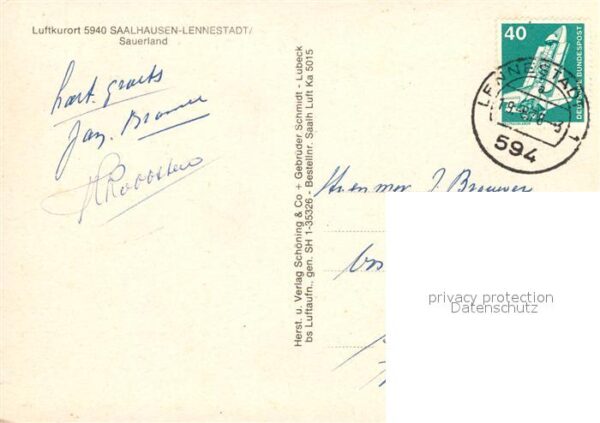 Luftkurort 5940 SAALHAUSEN-LENNESTADT/
Sauerland
hart. Groets
Jan. Brouwer
Herst. u. Verlag Schöning & Co + Gebrüder Schmidt - Lübeck
bs Luftaufn., gen. SH 1-35326 - Bestellnr. Saalh Luft Ka 5015
40
DEUTSCHE BUNDESPOST
LENNESTADT 1
594
J. Brouwer
privacy protection
Datenschutz